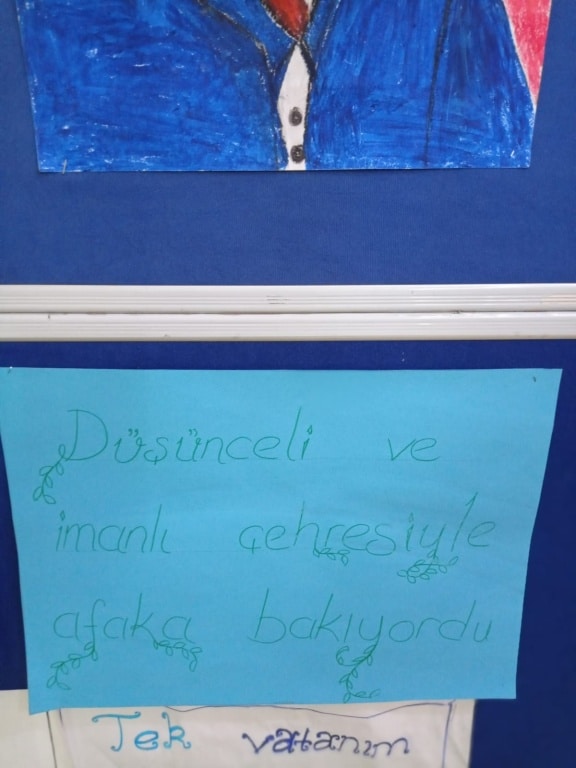 Düşünceli ve
imanlı çehresiyle
afaka bakıyordu
Tek vatanım